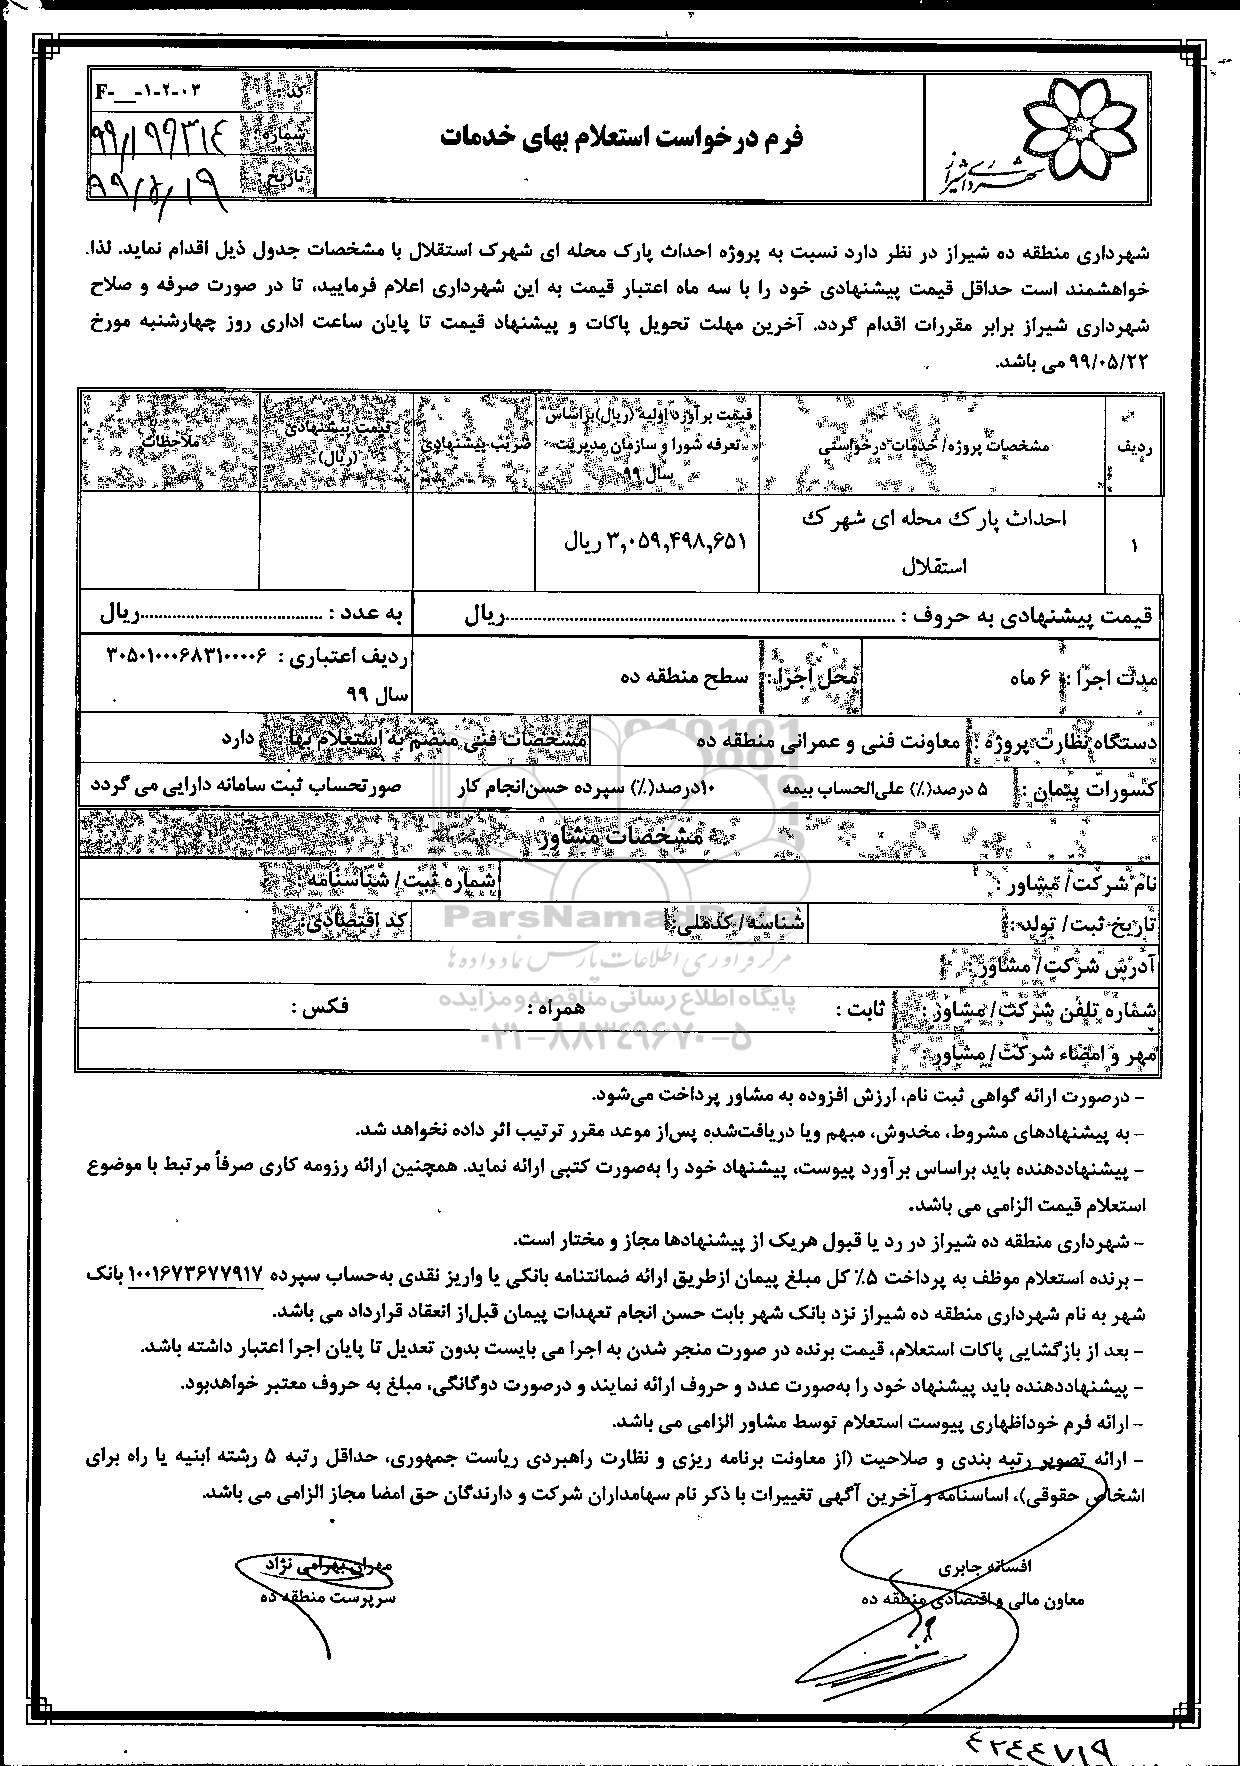 شهرداری شیراز
فرم درخواست استعلام بهای خدمات
کد: F-__-۱-۲-۰۳
شماره: ۹۹/۱۹۹۳۱۴
تاریخ:
شهرداری منطقه ده شیراز در نظر دارد نسبت به پروژه احداث پارک محله ای شهرک استقلال با مشخصات جدول ذیل اقدام نماید. لذا.
خواهشمند است حداقل قیمت پیشنهادی خود را با سه ماه اعتبار قیمت به این شهرداری اعلام فرمایید، تا در صورت صرفه و صلاح
شهرداری شیراز برابر مقررات اقدام گردد. آخرین مهلت تحویل پاکات و پیشنهاد قیمت تا پایان ساعت اداری روز چهارشنبه مورخ
۹۹/۰۵/۲۲ می باشد.
ردیف
مشخصات پروژه/ خدمات درخواستی
قیمت برآورد اولیه (ریال)براساس
تعرفه شورا و سازمان مدیریت
سال ۹۹
ضریب پیشنهادی
قیمت پیشنهادی
(ریال)
ملاحظات
۱
احداث پارک محله ای شهرک
استقلال
۳,۰۵۹,۴۹۸,۶۵۱ ریال
قیمت پیشنهادی به حروف : ..........................................................................ریال
به عدد : ...................................ریال
مدت اجرا : ۶ ماه
محل اجرا: سطح منطقه ده
ردیف اعتباری : ۳۰۵۰۱۰۰۰۶۸۳۱۰۰۰۰۶
سال ۹۹
دستگاه نظارت پروژه : معاونت فنی و عمرانی منطقه ده
مشخصات فنی منضم به استعلام بها دارد
کسورات پیمان : ۵ درصد(٪) علی‌الحساب بیمه ۱۰درصد(٪) سپرده حسن‌انجام کار صورتحساب ثبت سامانه دارایی می گردد
مشخصات مشاور
نام شرکت/ مشاور :
شماره ثبت/ شناسنامه
تاریخ ثبت/ تولد:
شناسه/ کدملی:
کد اقتصادی:
ParsNamad
آدرس شرکت/ مشاور :
مرکز فرآوری اطلاعات پارس نماد داده‌ها
شماره تلفن شرکت/ مشاور : ثابت : همراه : فکس :
پایگاه اطلاع رسانی مناقصه و مزایده
۰۲۱-۸۸۳۴۹۶۷۰-۵
مهر و امضاء شرکت/ مشاور :
- درصورت ارائه گواهی ثبت نام، ارزش افزوده به مشاور پرداخت می‌شود.
- به پیشنهادهای مشروط، مخدوش، مبهم ویا دریافت‌شده پس‌از موعد مقرر ترتیب اثر داده نخواهد شد.
- پیشنهاددهنده باید براساس برآورد پیوست، پیشنهاد خود را به‌صورت کتبی ارائه نماید. همچنین ارائه رزومه کاری صرفاً مرتبط با موضوع
استعلام قیمت الزامی می باشد.
- شهرداری منطقه ده شیراز در رد یا قبول هریک از پیشنهادها مجاز و مختار است.
- برنده استعلام موظف به پرداخت ۵٪ کل مبلغ پیمان ازطریق ارائه ضمانتنامه بانکی یا واریز نقدی به‌حساب سپرده ۱۰۰۱۶۷۳۶۷۷۹۱۷ بانک
شهر به نام شهرداری منطقه ده شیراز نزد بانک شهر بابت حسن انجام تعهدات پیمان قبل‌از انعقاد قرارداد می باشد.
- بعد از بازگشایی پاکات استعلام، قیمت برنده در صورت منجر شدن به اجرا می بایست بدون تعدیل تا پایان اجرا اعتبار داشته باشد.
- پیشنهاددهنده باید پیشنهاد خود را به‌صورت عدد و حروف ارائه نمایند و درصورت دوگانگی، مبلغ به حروف معتبر خواهدبود.
- ارائه فرم خوداظهاری پیوست استعلام توسط مشاور الزامی می باشد.
- ارائه تصویر رتبه بندی و صلاحیت (از معاونت برنامه ریزی و نظارت راهبردی ریاست جمهوری، حداقل رتبه ۵ رشته ابنیه یا راه برای
اشخاص حقوقی)، اساسنامه و آخرین آگهی تغییرات با ذکر نام سهامداران شرکت و دارندگان حق امضا مجاز الزامی می باشد.
افسانه جابری
معاون مالی و اقتصادی منطقه ده
مهران بهرامی نژاد
سرپرست منطقه ده